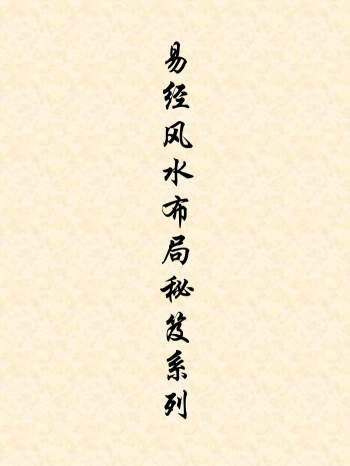 易经风水布局秘笈系列